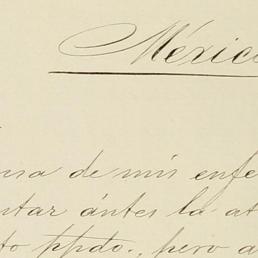 México
usa de mis enfe
ntar ántes la at
to ppdo., pero a